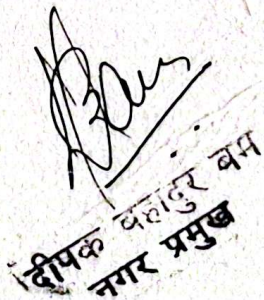 दीपक बहादुर बम
नगर प्रमुख